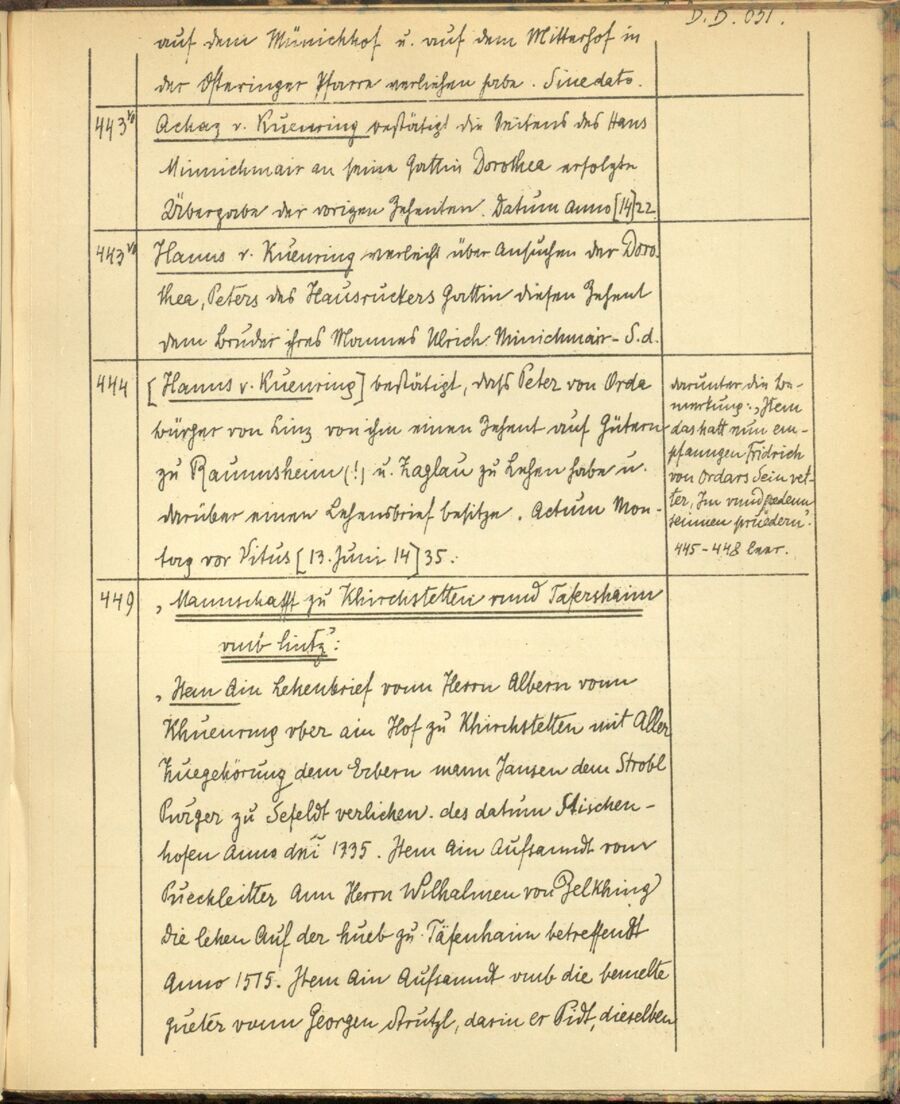 D. D. 031.
auf dem Münichhof u. auf dem Mitterhof in
der Ofteringer Pfarre verliehen habe. Sine dato.
443 v/o Achaz v. Kuenring bestätigt die Seitens des Hans
Minnichmair an seine Gattin Dorothea erfolgte
Übergabe der vorigen Zehenten. Datum anno [14]22
443 v/o Hanns v. Kuenring verleiht über Ansuchen der Doro-
thea, Peters des Hausruckers Gattin diesen Zehent
dem Bruder ihres Mannes Ulrich Minichmair - S. d.
444 [Hanns v. Kuenring] bestätigt, dass Peter von Orda
bürger von Linz von ihm einen Zehent auf Gütern
zu Raumnsheim (!) u. Zaglau zu Lehen habe u.
darüber einen Lehensbrief besitze. Actum Mon-
tag vor Vitus [13. Juni 14]35.
darunter die Be-
merkung: „Item
das hatt nun em-
pfanngen Fridrich
von Ordars Sein vet-
ter, Im vnnd
seinnen prüedern".
445-448 leer.
449 „Mannschafft zu Khirchstetten vnnd Tafershaim
vmb lintz":
„Item Ain Lehenbrief vonn Herrn Albern vonn
Khuenrng vber ain Hof zu Khirchstetten mit Aller
Zuegehörung dem Erbern mann Jansen dem Strobl
Purger zu Sefeldt verlichen. des datum Stischen-
hofen Anno dni 1335. Item Ain Aufsanndt vom
Puechleitter Ann Herrn Wilhalmen von Zelkhing
die lehen Auf der hueb zu Täfenhaim betreffendt
Anno 1515. Item Ain Aufsanndt vmb die bemelte
gueter vonn Georgen Strutzl, darin er Pidt, dieselben